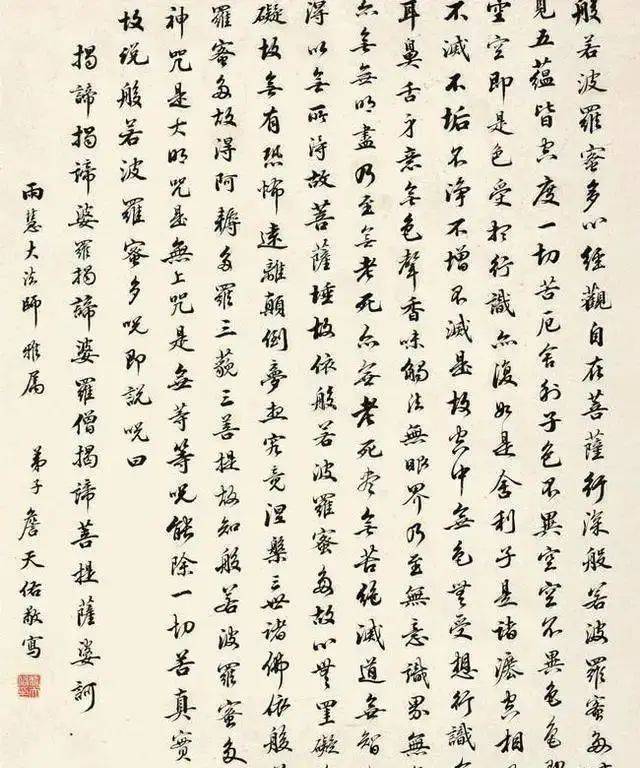 般若波羅蜜多心經觀自在菩薩行深般若波羅蜜多
見五蘊皆空度一切苦厄舍利子色不異空空不異色色即
空空即是色受想行識亦復如是舍利子是諸灋空相
不滅不垢不淨不增不滅是故空中無色無受想行識
耳鼻舌身意無色聲香味觸法無眼界乃至無意識界無
亦無無明盡乃至無老死亦無老死盡無苦集滅道無智
得以無所得故菩薩埵故依般若波羅蜜多故心無罣礙
礙故無有恐怖遠離顛倒夢想究竟涅槃三世諸佛依般
羅蜜多故得阿耨多羅三藐三菩提故知般若波羅蜜多
神咒是大明咒是無上咒是無等等呪能除一切苦真實
故說般若波羅蜜多呪即說呪曰
揭諦揭諦婆羅揭諦婆羅僧揭諦菩提薩婆訶
雨慧大法師雅属 弟子詹天佑敬寫